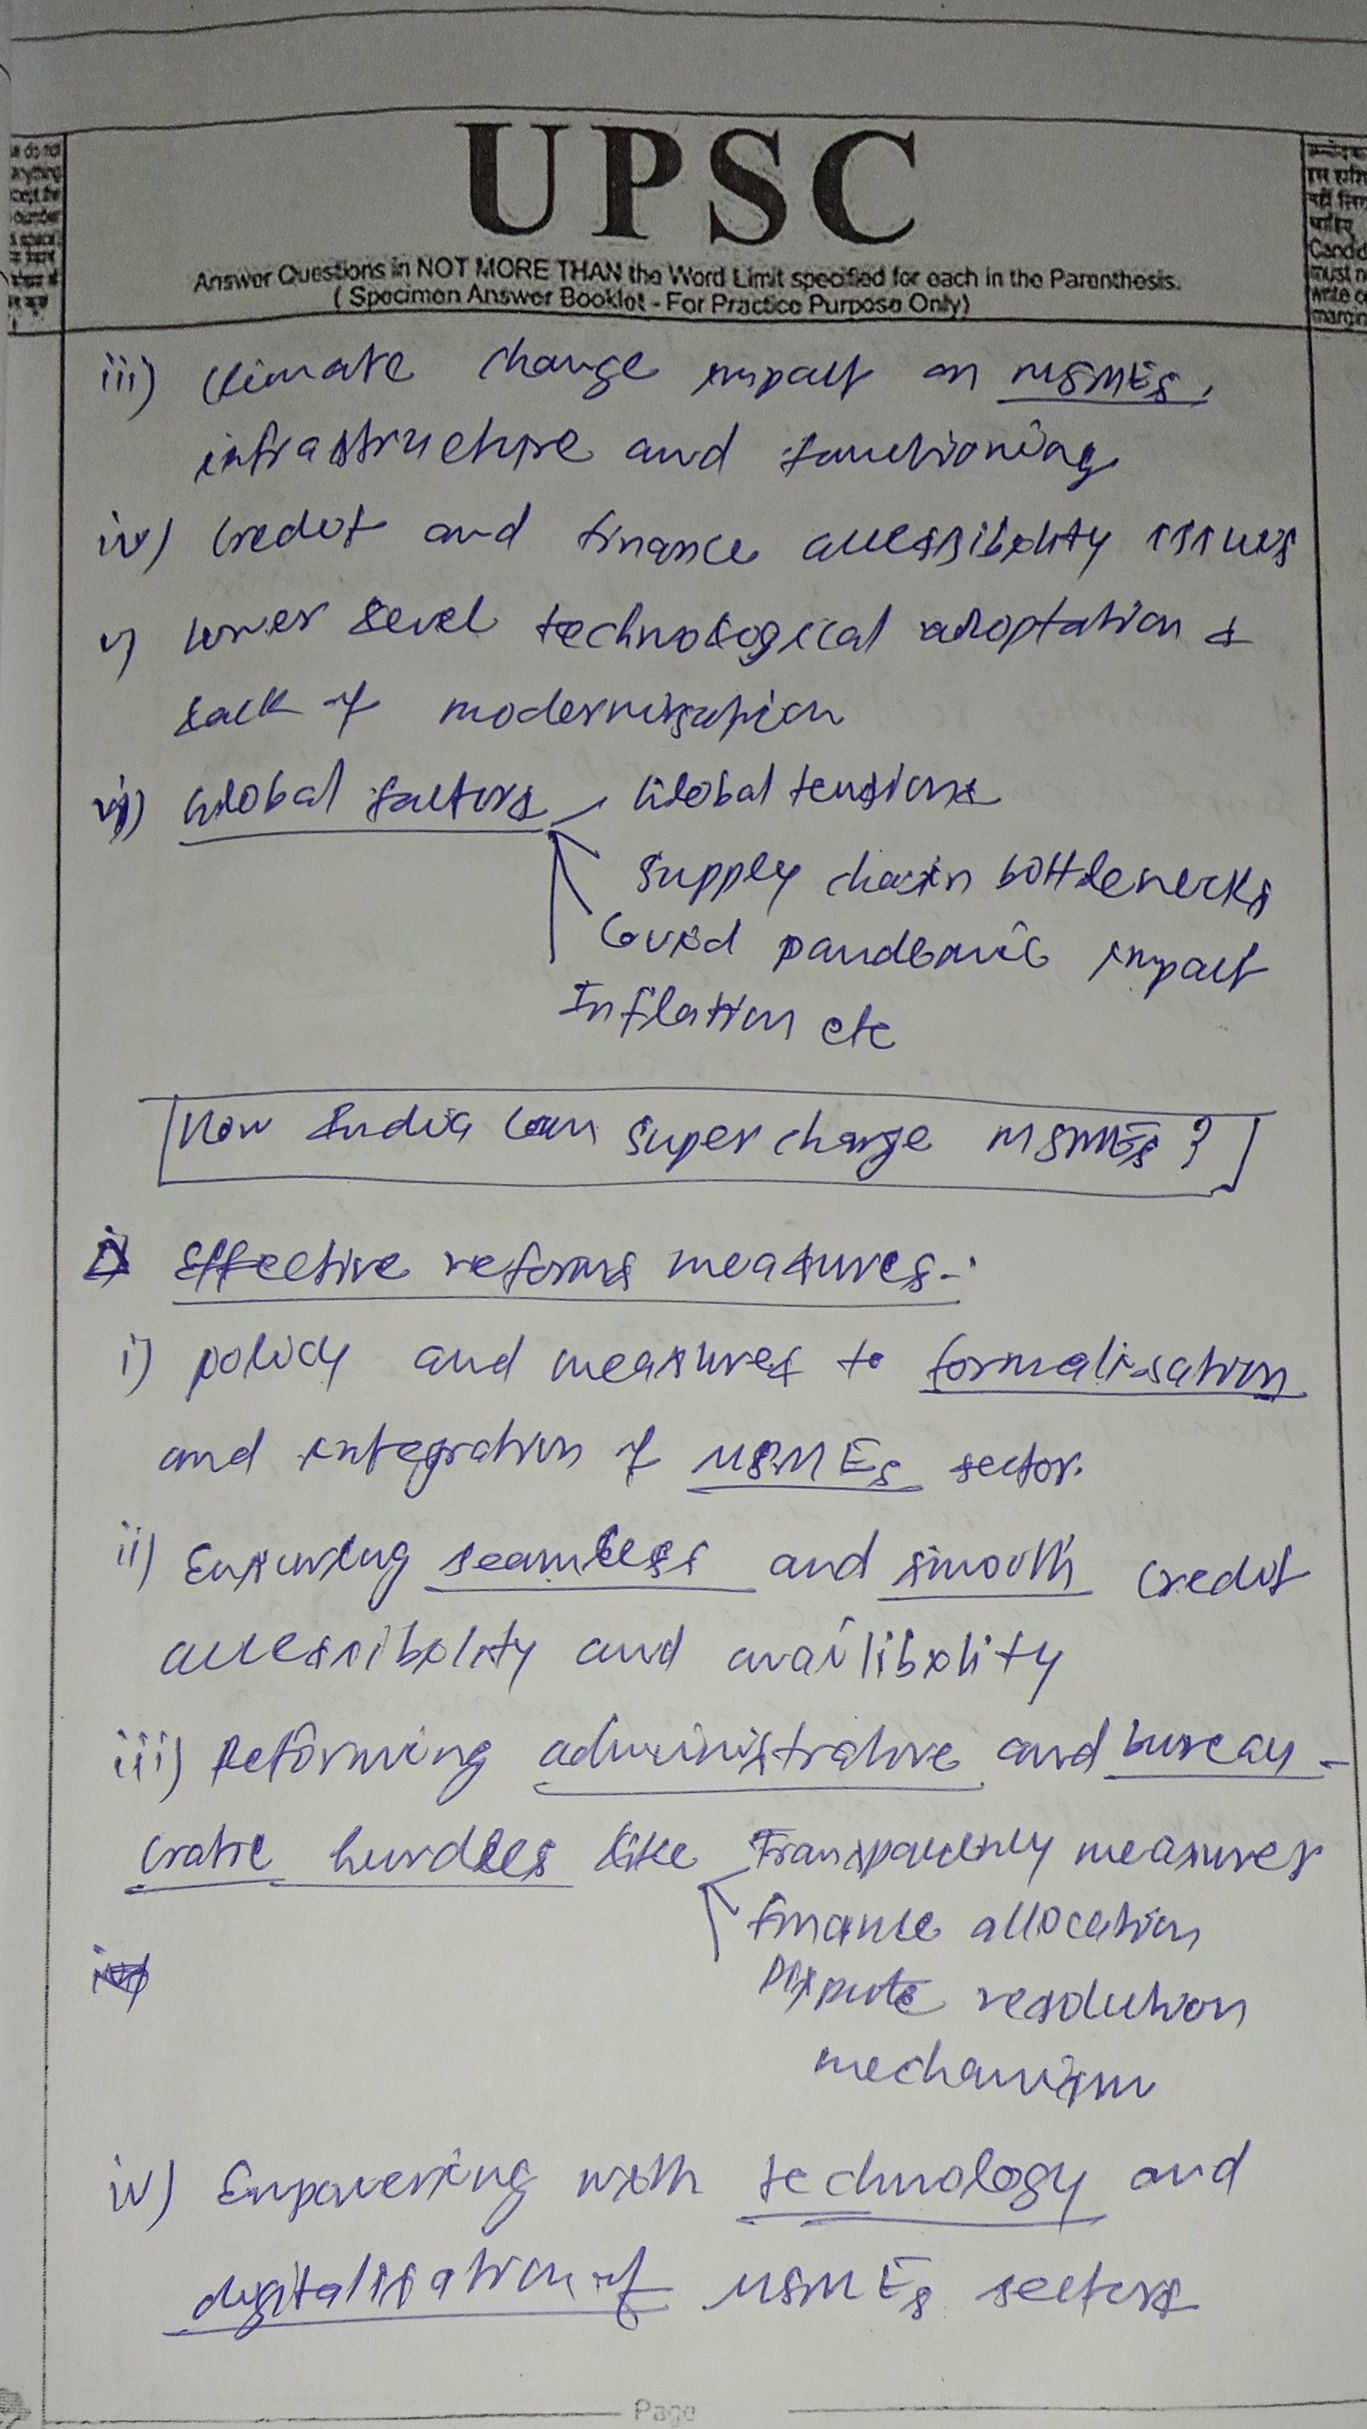 UPSC
Answer Questions in NOT MORE THAN the Word Limit specified for each in the Parenthesis.
( Specimen Answer Booklet - For Practice Purpose Only)
iii) Climate change impact on MSMEs,
infrastructure and functioning
iv) Credit and finance accessibility issues
v) lower level technological adoptation &
lack of modernisation
vi) Global factors Global tensions
Supply chain bottlenecks
Covid pandemic impact
Inflation etc
How India can supercharge MSMEs?
Effective reforms measures-:
i) policy and measures to formalisation
and integration of MSMEs sector.
ii) Ensuring seamless and smooth credit
accessibility and availibility
iii) Reforming administrative and bureau-
cratic hurdles like Transparency measures
finance allocation
Dispute resolution
mechanism
iv) Empowering with technology and
digitalisation of MSMEs sectors
Page